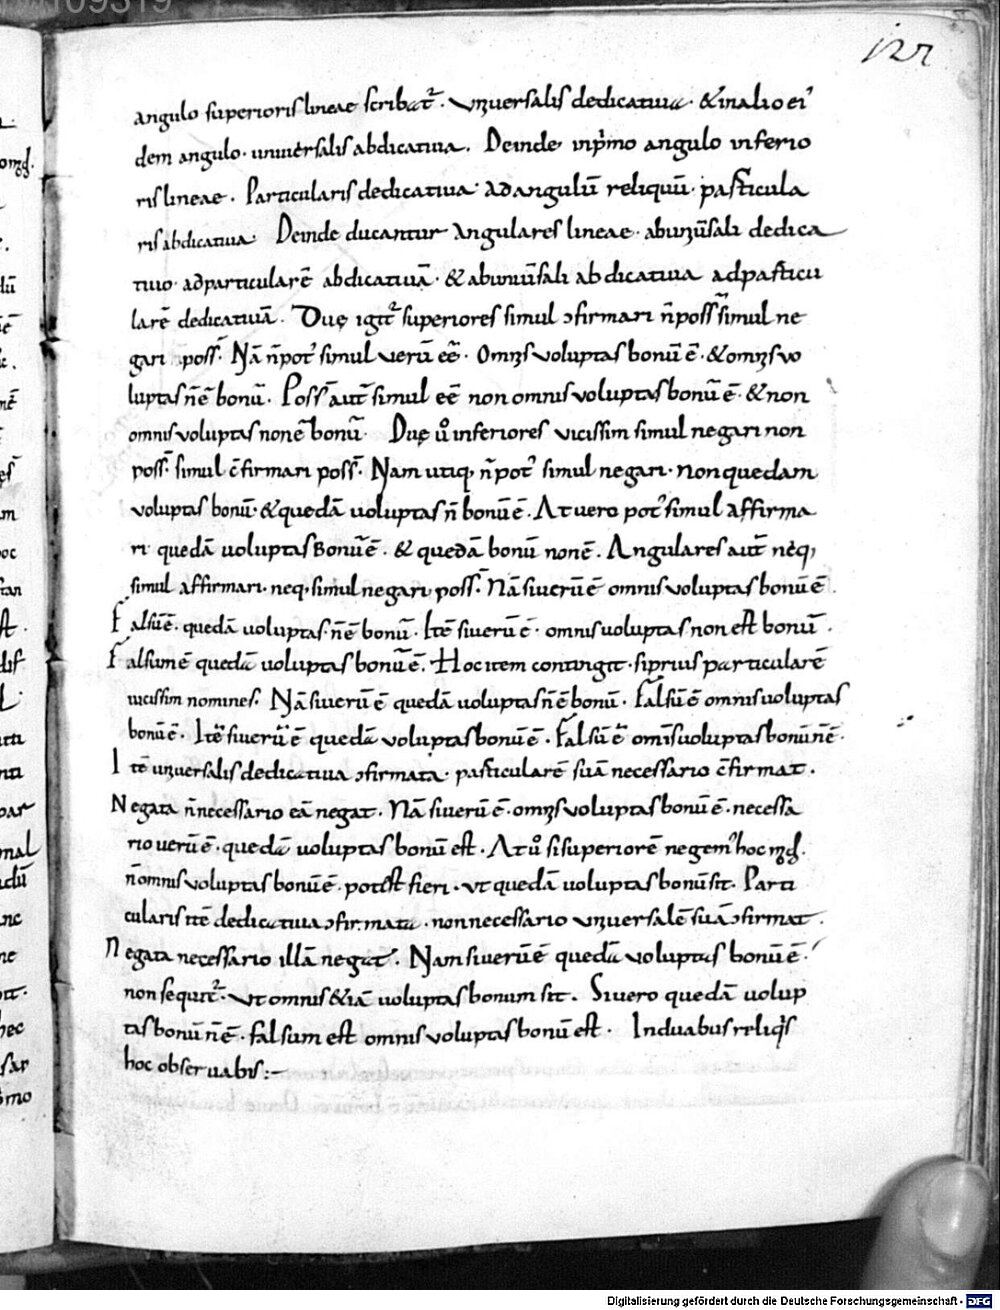 109319
127
angulo superioris lineae scribat᷑. uniuersalis dedicatiua. & in alio ei'
dem angulo. uniuersalis abdicatiua. Deinde inp̄mo angulo inferio
ris lineae. Particularis dedicatiua. ad angulū reliquū. particula
ris abdicatiua. Deinde ducantur angulares lineae. ab uniūsali dedica
tiuo. ad particularē abdicatiuā. & ab uniūsali abdicatiua ad particu
larē dedicatiuā. Duę igit᷑ superiores simul ɔfirmari n̄ poss̄ simul ne
gari poss̄. Nā n̄ pot' simul uerū eē. Omīs uoluptas bonū ē. & omīs uo
luptas n̄ ē bonū. Poss̄ aut̄ simul eē non omnis uoluptas bonū ē. & non
omnis uoluptas non ē bonū. Duę ů inferiores uicissim simul negari non
poss̄. simul c̄firmari poss̄. Nam utiq; n̄ pot' simul negari. non quedam
uoluptas bonū. & quedā uoluptas n̄ bonū ē. At uero pot' simul affirma
ri quedā uoluptas bonū ē. & quedā bonū non ē. Angulares aut̄ neq;
simul affirmari. neq; simul negari poss̄. Nā si uerū ē omnis uoluptas bonū ē.
Falsū ē. quedā uoluptas n̄ ē bonū. Itē si uerū ē. omnis uoluptas non est bonū.
Falsum ē quedā uoluptas bonū ē. Hoc item contingit. si prius particularē
uicissim nomines. Nā si uerū ē quedā uoluptas n̄ ē bonū. Falsū ē omnis uoluptas
bonū ē. Itē si uerū ē quedā uoluptas bonū ē. Falsū ē omīs uoluptas bonū n̄ ē.
Itē uniuersalis dedicatiua ɔfirmata. particularē suā necessario c̄firmat.
Negata n̄ necessario eā negat. Nā si uerū ē. omīs uoluptas bonū ē. necessa
rio uerū ē. quedā uoluptas bonū est. At ů si superiorē negem' hoc
n̄ omnis uoluptas bonū ē. potest fieri. ut quedā uoluptas bonū sit. Parti
cularis itē dedicatiua ɔfirmata. non necessario uniuersalē suā ɔfirmat.
Negata necessario illā negat. Nam si uerū ē quedā uoluptas bonū ē.
non sequit᷑. ut omnis & iā uoluptas bonum sit. Si uero quedā uolup
tas bonū n̄ ē. falsum est omnis uoluptas bonū est. In duabus reliq̇s
hoc obseruabis:-
Digitalisierung gefördert durch die Deutsche Forschungsgemeinschaft - DFG